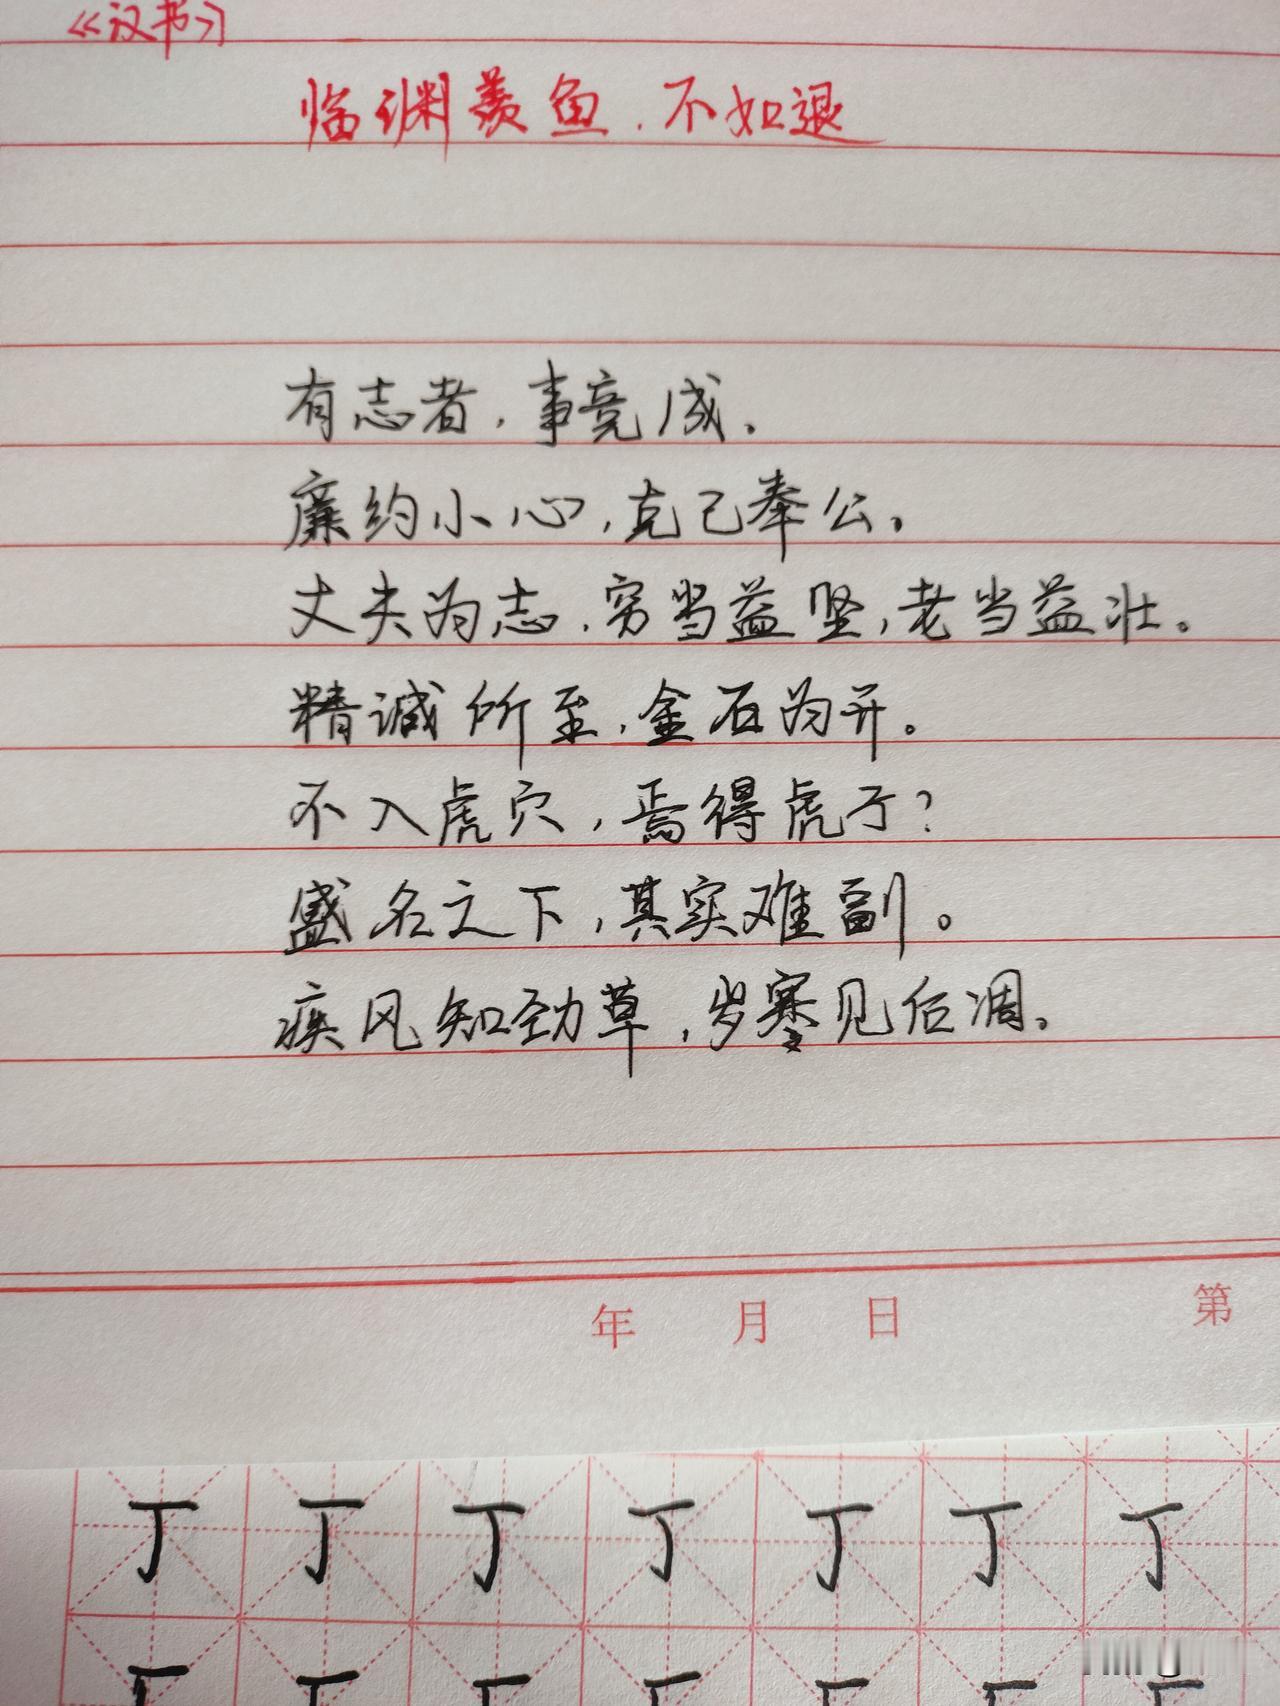 《汉书》
临渊羡鱼，不如退
有志者，事竟成。
廉约小心，克己奉公。
丈夫为志，穷当益坚，老当益壮。
精诚所至，金石为开。
不入虎穴，焉得虎子？
盛名之下，其实难副。
疾风知劲草，岁寒见后凋。
年 月 日 第
丁 丁 丁 丁 丁 丁 丁